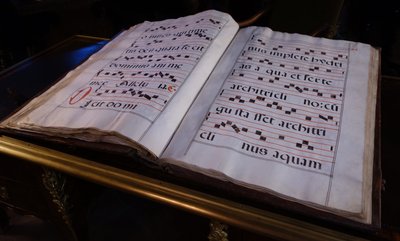 quanta fe cit
dominus ani me
Dicit do mi
implete hydri
as a qua et ferte
architricli no: cū
gusta sset architri
cli nus aquam